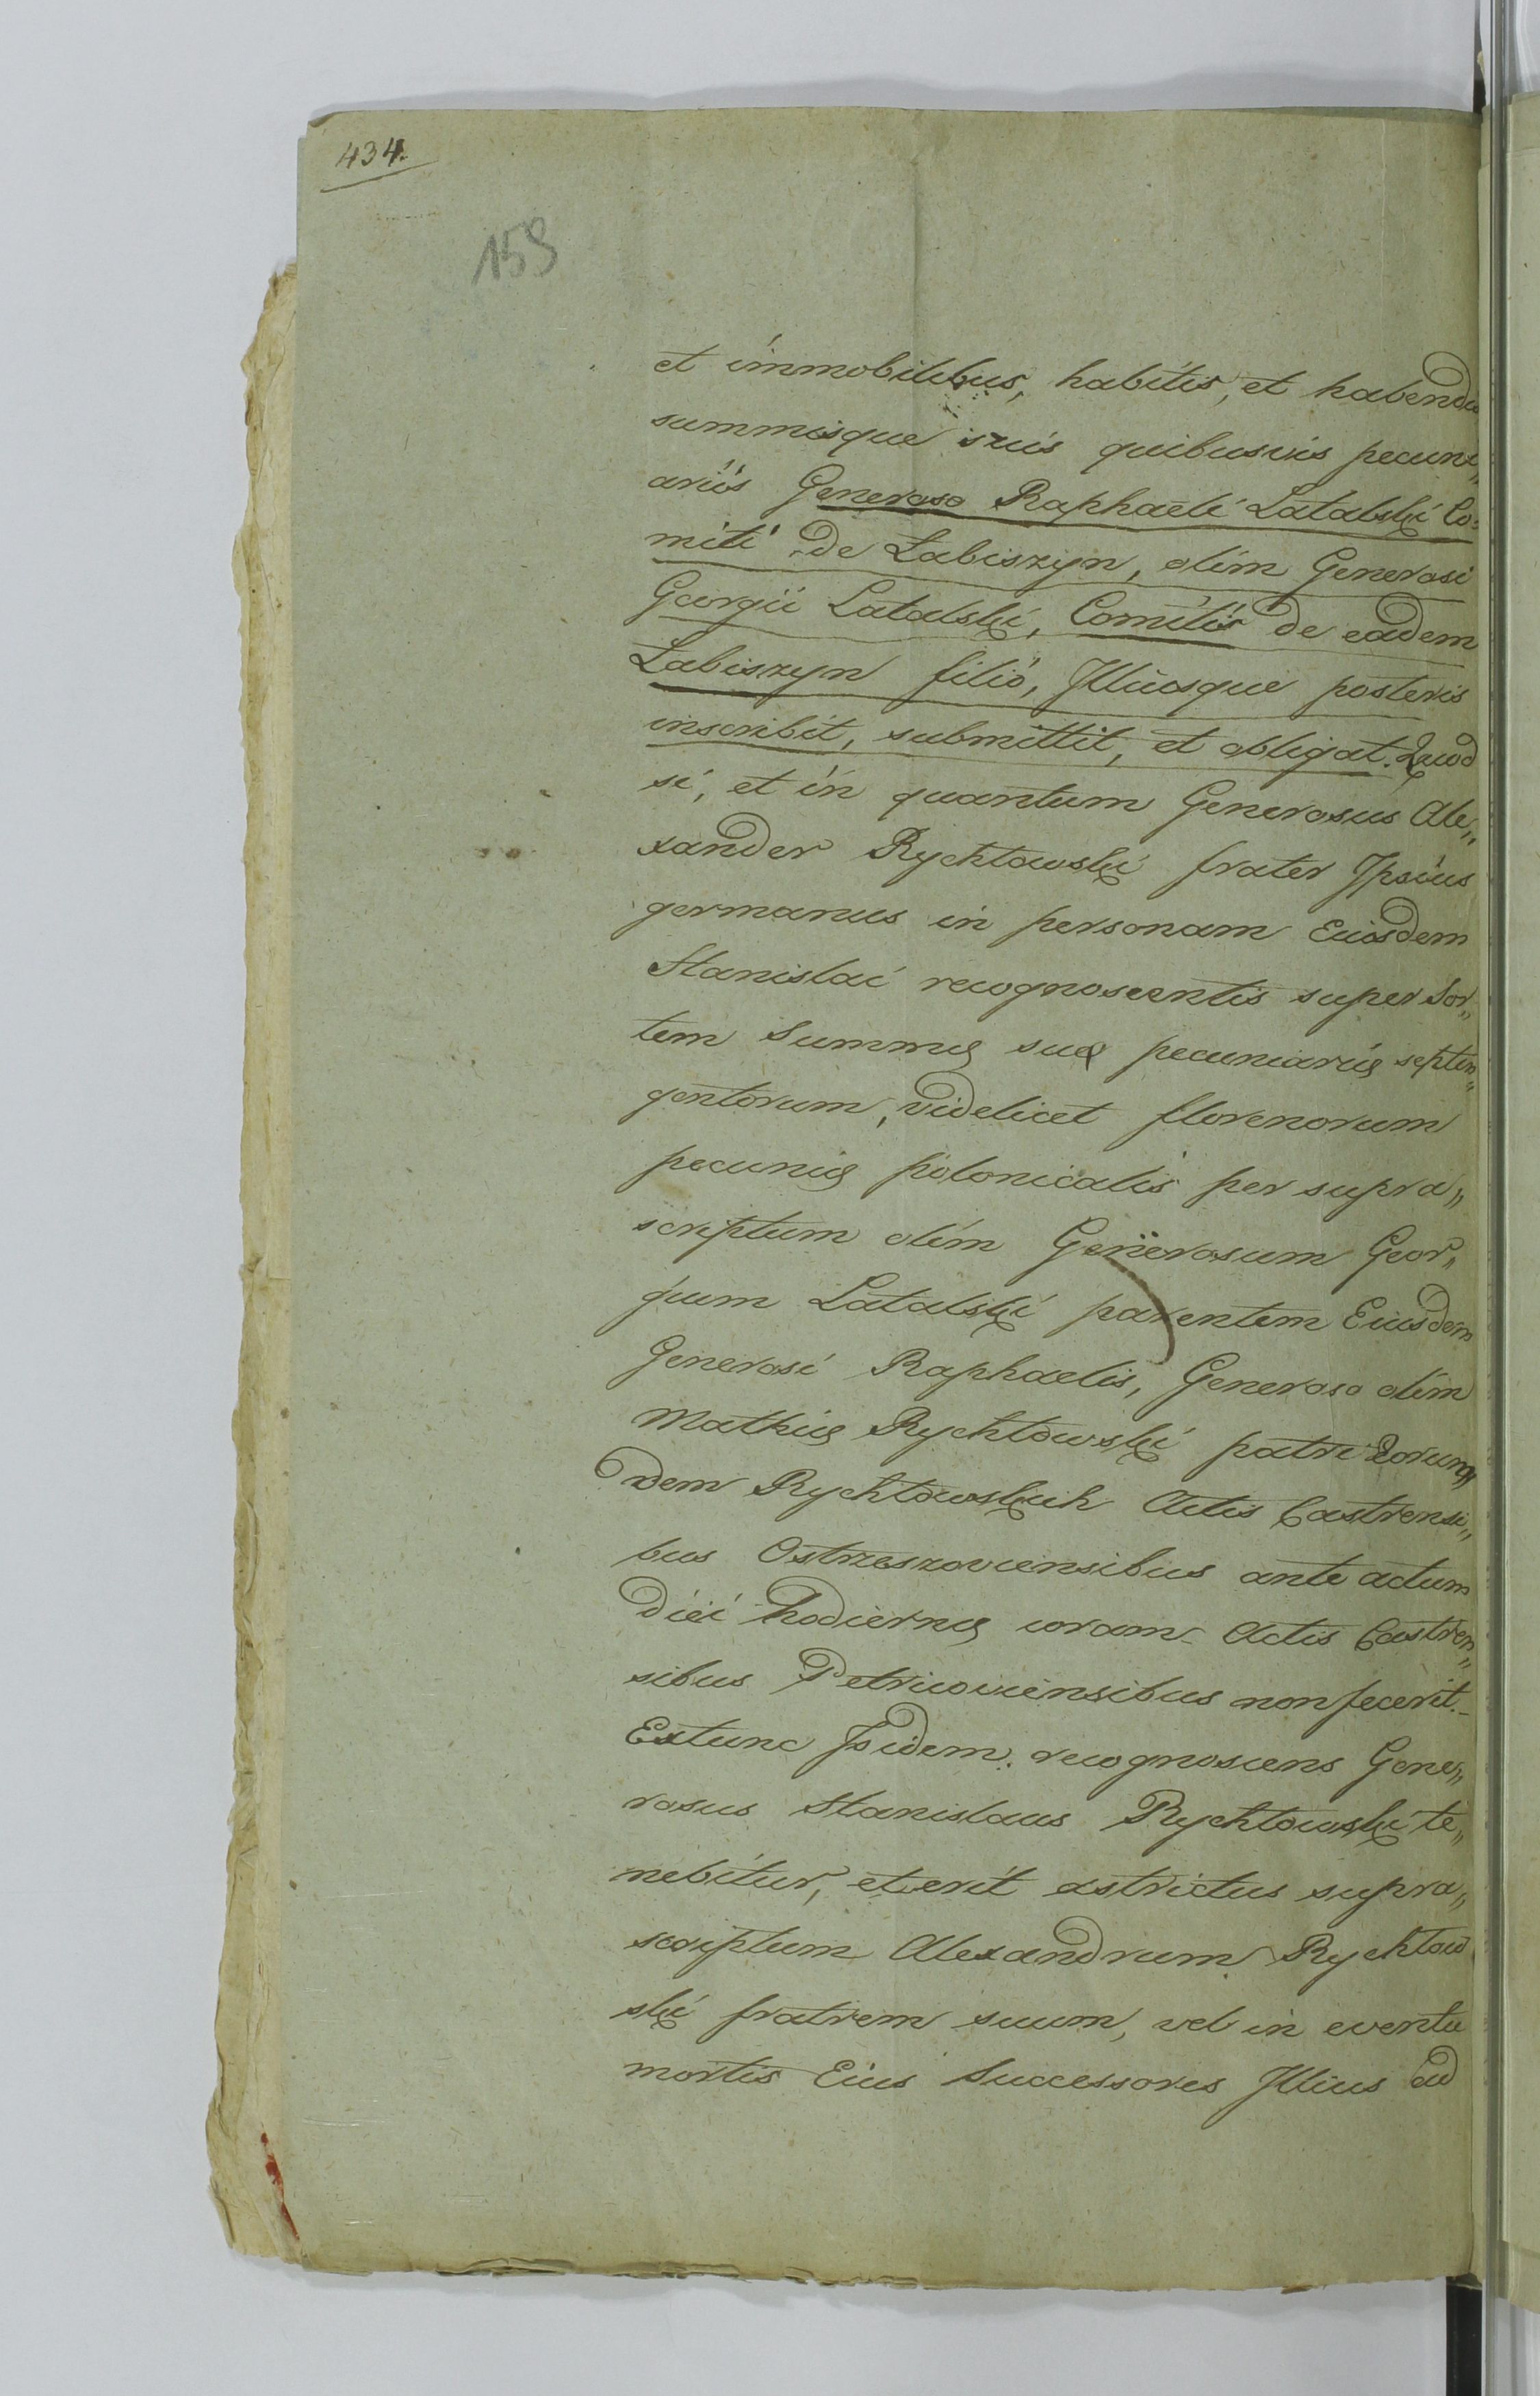 434.
159
et immobilibus, habitis, et habendis
summisque suis quibusvis pecuni„
ariis Generoso Raphaeli Latalski Co=
miti de Łabiszyn, olim Generosi
Georgii Latalski, Comitis de eadem
Łabiszyn filio, Illiusque posteris
inscribit, submittit, et obligat. Quod
si, et in quantum Generosus Ale„
xander Rychłowski frater Ipsius
germanus in personam Eiusdem
Stanislai recognoscentis super Sor„
tem Summę suę pecuniarię septin„
gentorum, videlicet florenorum
pecunię polonicalis per supra„
scriptum olim Generosum Geor„
gium Latalski parentem Eiusdem
Generosi Raphaelis, Generoso olim
Mathię Rychłowski patri Eorun„
dem Rychłowskich Actis Castrensi„
bus Ostrzeszoviensibus ante actum
diei hodiernę coram Actis Castren„
sibus Petricoviensibus non fecerit.
Extunc Isidem recognoscens Gene„
rosus Stanislaus Rychłowski te„
nebitur, et erit astrictus supra„
scriptum Alexandrum Rychłow
ski fratrem suum, vel in eventu
mortis Eius Successores Illius ad